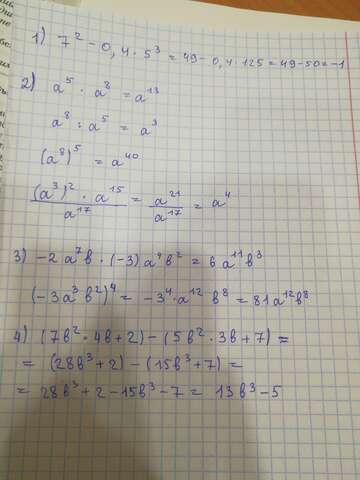 1) 7² - 0,4 · 5³ = 49 - 0,4 · 125 = 49 - 50 = -1
2) a⁵ · a⁸ = a¹³
a⁸ : a⁵ = a³
(a⁸)⁵ = a⁴⁰
(a³)² · a¹⁵ / a¹⁷ = a²¹ / a¹⁷ = a⁴
3) -2 a⁷b · (-3) a⁴b² = 6 a¹¹b³
(-3a³b²)⁴ = -3⁴ · a¹² · b⁸ = 81a¹²b⁸
4) (7b² · 4b + 2) - (5b² · 3b + 7) =
= (28b³ + 2) - (15b³ + 7) =
= 28b³ + 2 - 15b³ - 7 = 13b³ - 5